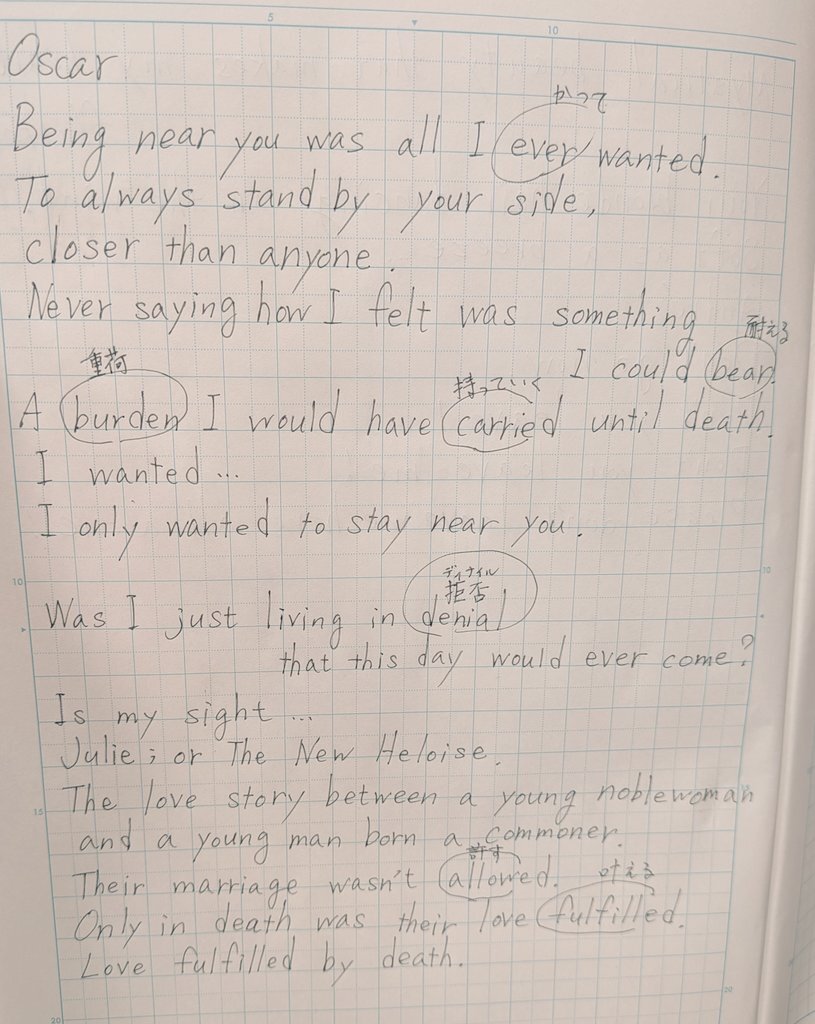 5
10
Oscar
かって
Being near you was all I ever wanted.
To always stand by your side,
closer than anyone.
Never saying how I felt was something
耐える
I could bear.
重荷
持っていく
A burden I would have carried until death.
I wanted...
I only wanted to stay near you.
10
10
ディナイル
拒否
Was I just living in denial
that this day would ever come?
Is my sight...
Julie; or The New Heloise.
15
The love story between a young noblewoman
and a young man born a commoner.
許す
叶える
Their marriage wasn't allowed.
Only in death was their love fulfilled.
Love fulfilled by death.
20
20